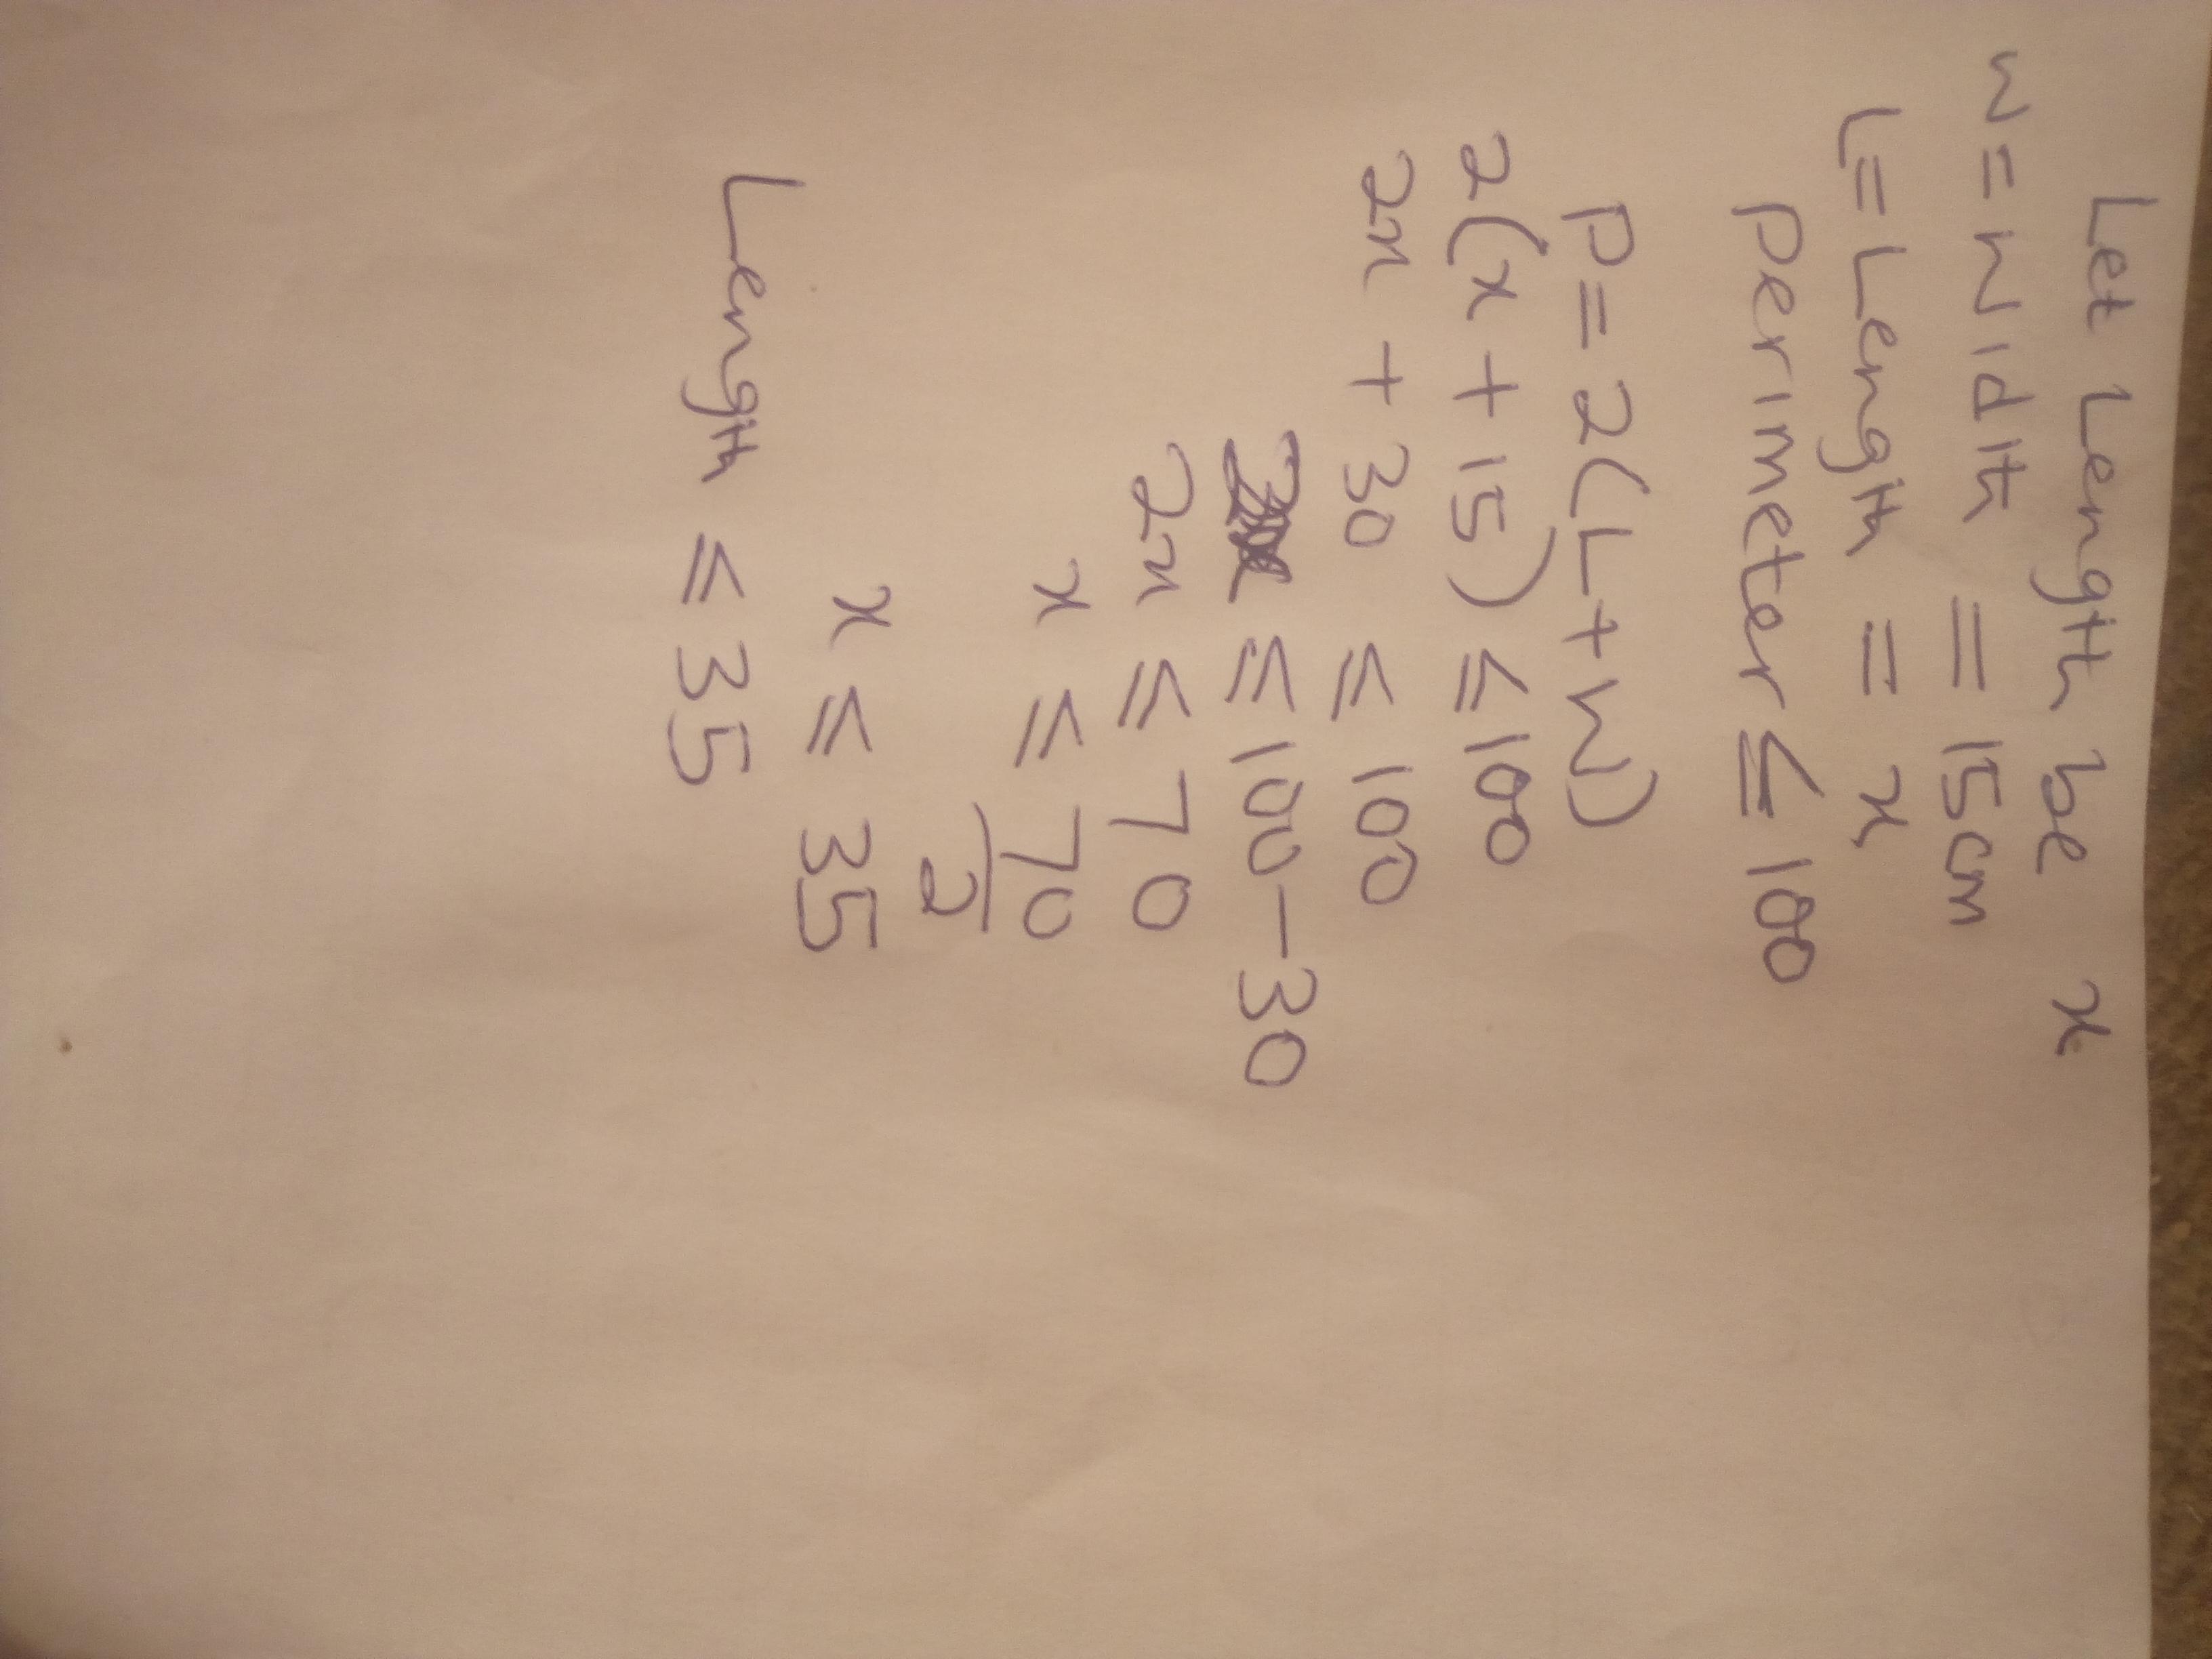 Let Length be x
W = Width = 15cm
L = Length = x
Perimeter ≤ 100
P = 2(L+W)
2(x + 15) ≤ 100
2x + 30 ≤ 100
≤ 100 - 30
2x ≤ 70
x ≤ 70/2
x ≤ 35
Length ≤ 35